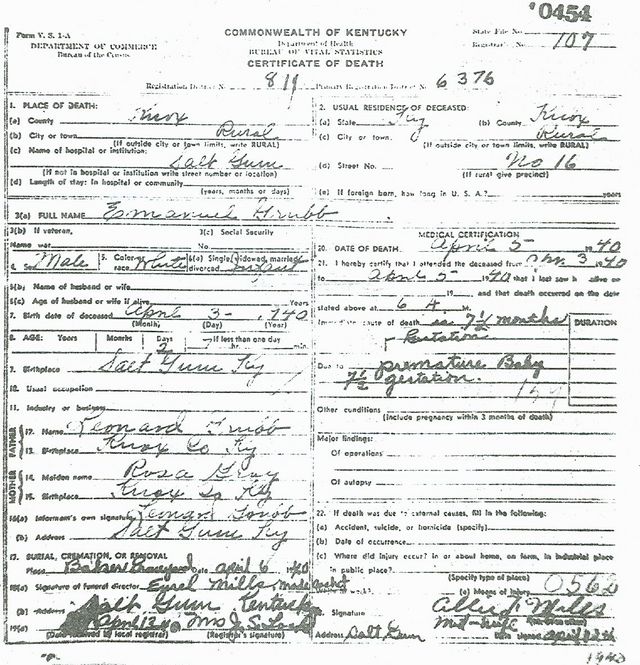 0454
Form V. S. 1-A
COMMONWEALTH OF KENTUCKY
State File No.
DEPARTMENT OF COMMERCE
Department of Health
Bureau of the Census
BUREAU OF VITAL STATISTICS
Registrar's No. 107
CERTIFICATE OF DEATH
Registration District No. 819 Primary Registration District No. 6376
1. PLACE OF DEATH:
(a) County Knox
(b) City or town Rural
(If outside city or town limits, write RURAL)
(c) Name of hospital or institution:
Salt Gum
(If not in hospital or institution write street number or location)
(d) Length of stay: In hospital or community
(years, months or days)
2. USUAL RESIDENCE OF DECEASED:
(a) State Ky (b) County Knox
(c) City or town Rural
(If outside city or town limits, write RURAL)
(d) Street No. No 16
(If rural give precinct)
(e) If foreign born, how long in U. S. A.? years
3(a) FULL NAME Emanuel Grubb
3(b) If veteran, 3(c) Social Security
Name war No.
4. Sex Male 5. Color or race White 6(a) Single, widowed, married, divorced Infant
6(b) Name of husband or wife
6(c) Age of husband or wife if alive Years
7. Birth date of deceased April 3- 1940
(Month) (Day) (Year)
8. AGE: Years Months Days If less than one day
2 hr. min.
9. Birthplace Salt Gum Ky
10. Usual occupation
11. Industry or business
FATHER
12. Name Leonard Grubb
13. Birthplace Knox Co Ky
MOTHER
14. Maiden name Rosa Gray
15. Birthplace Knox Co Ky
16(a) Informant's own signature Grubb
(b) Address Salt Gum Ky
17. BURIAL, CREMATION, OR REMOVAL
Place Graveyard Date April 6 1940
18(a) Signature of funeral director Mills made
(b) Address Salt Gum Kentucky
19(a) April 12 Mrs J. S.
(Date received by local registrar) (Registrar's signature)
MEDICAL CERTIFICATION
20. DATE OF DEATH April 5 1940
21. I hereby certify that I attended the deceased from 3 1940
to April 5 1940 that I last saw h alive on
19 , and that death occurred on the date
stated above at 6 A. M.
Immediate cause of death 7½ months
DURATION
gestation
Due to premature Baby
7½ gestation.
Other conditions
(Include pregnancy within 3 months of death)
Major findings:
Of operations
Of autopsy
22. If death was due to external causes, fill in the following:
(a) Accident, suicide, or homicide (specify)
(b) Date of occurrence
(c) Where did injury occur? In or about home, on farm, in industrial place
in public place?
(Specify type of place)
(e) Means of injury 0562
Signature Mills
Mid-wife
Address Salt Gum Date signed April
1940